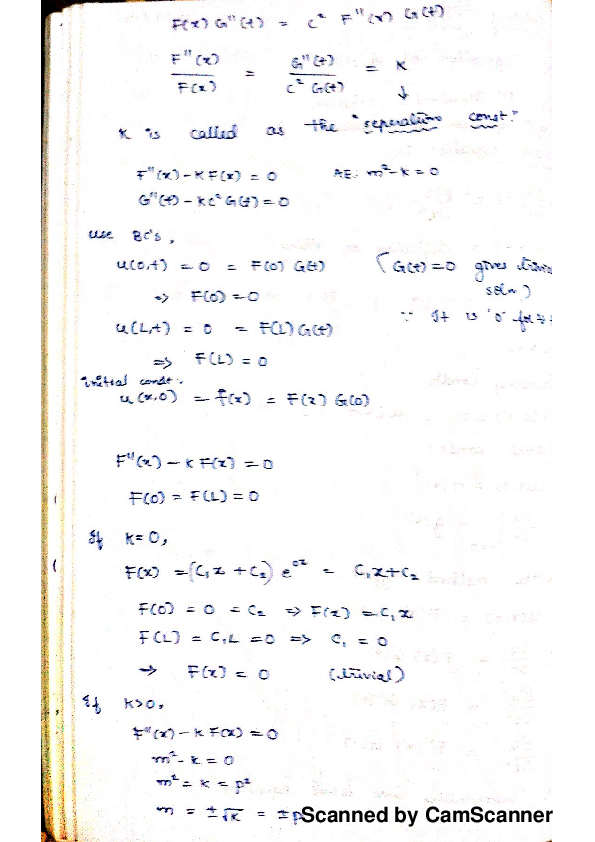 F(x) G''(t) = c² F''(x) G(t)
F''(x)/F(x) = G''(t)/c² G(t) = K
↓
K is called as the "seperation const."
F''(x) - K F(x) = 0 AE: m² - k = 0
G''(t) - Kc² G(t) = 0
Use BC's,
u(0,t) = 0 = F(0) G(t) (G(t) = 0 gives
soln)
=> F(0) = 0 ∵ It is '0' for
u(L,t) = 0 = F(L) G(t)
=> F(L) = 0
initial condt.
u(x,0) = f(x) = F(x) G(0)
F''(x) - K F(x) = 0
F(0) = F(L) = 0
If K = 0,
F(x) = (C₁x + C₂) e^{0x} = C₁x + C₂
F(0) = 0 = C₂ => F(x) = C₁x
F(L) = C₁L = 0 => C₁ = 0
→ F(x) = 0 (trivial)
If K>0,
F''(x) - K F(x) = 0
m² - k = 0
m² = k = p²
m = ±√K = ±p
Scanned by CamScanner